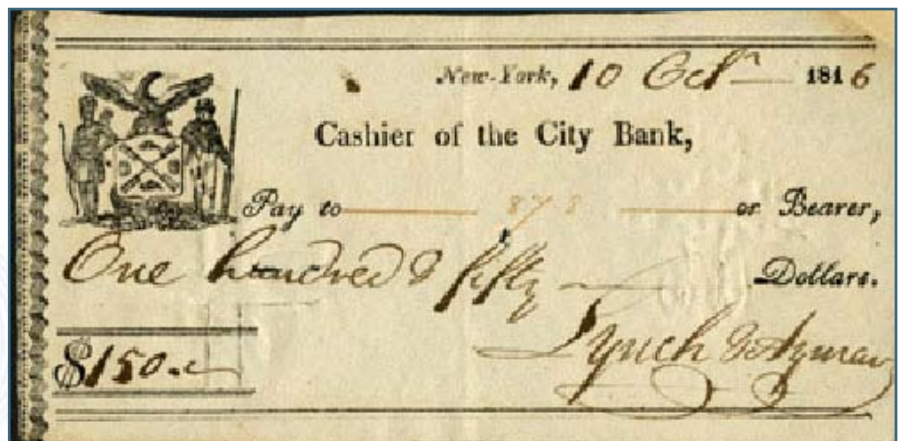 New-York, 10 Octr 1816
Cashier of the City Bank,
Pay to 878 or Bearer,
One hundred & fifty Dollars.
$150..
Lynch &